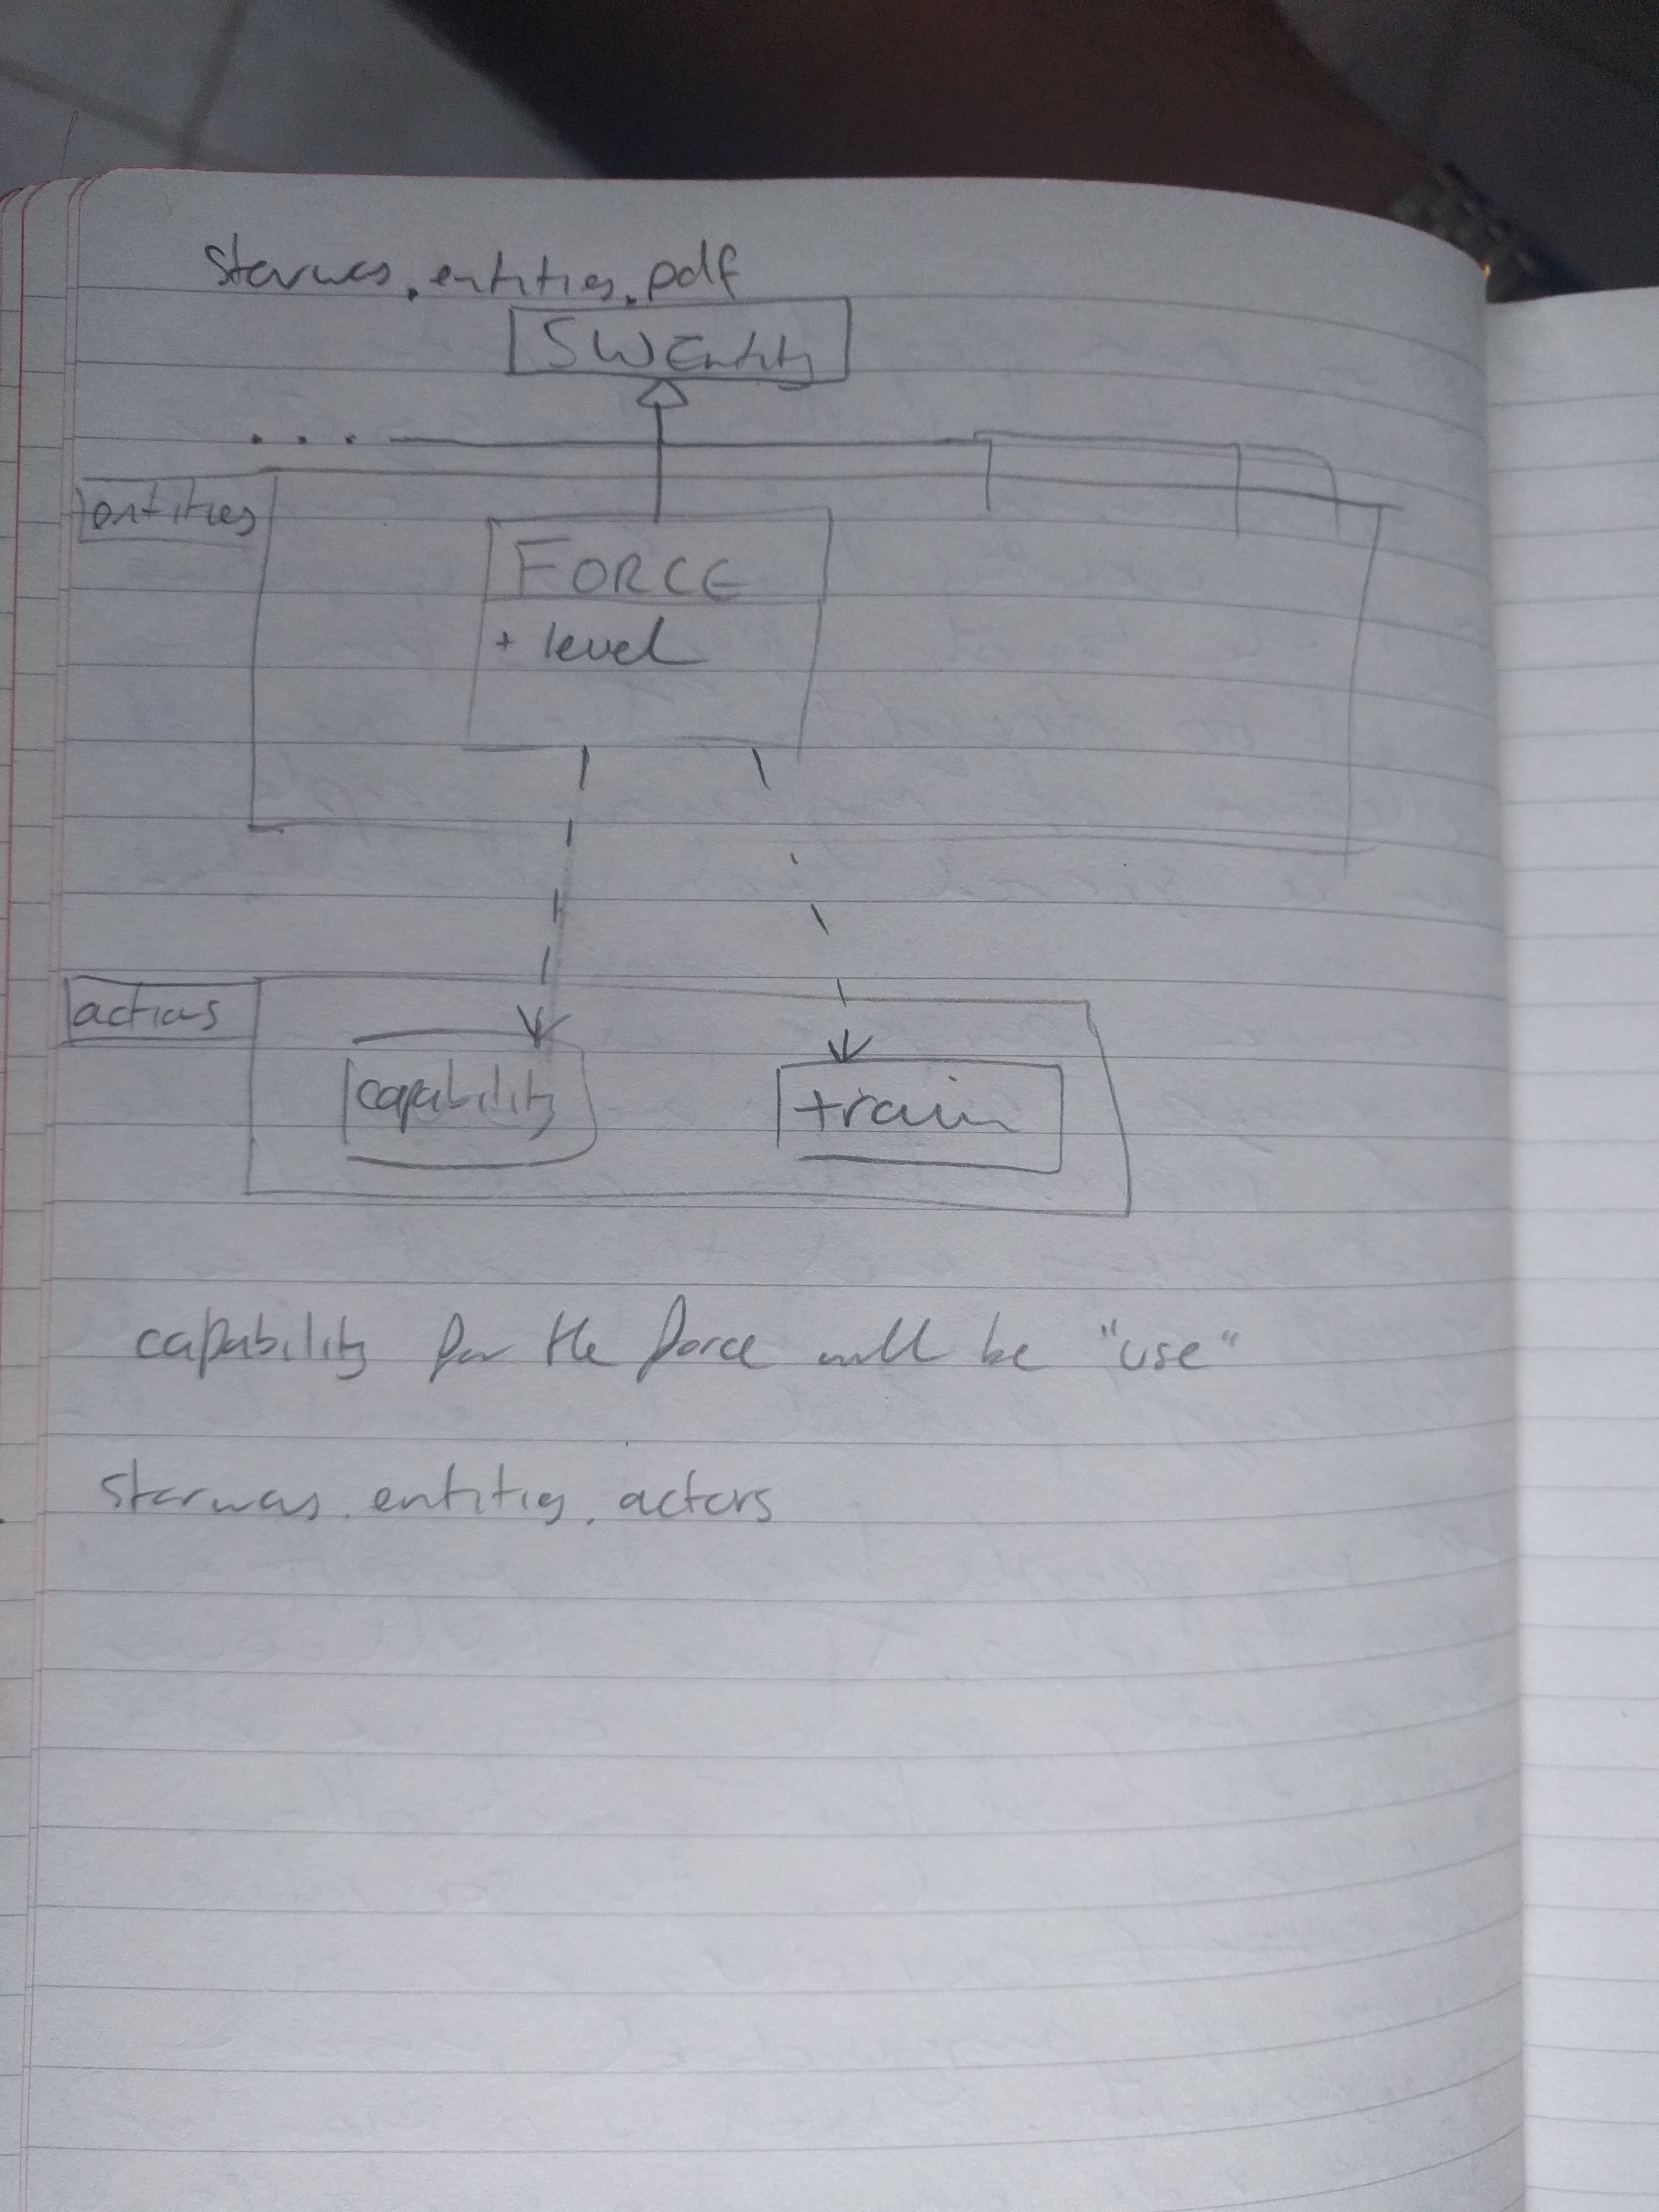 starwars.entities.pdf
SWEntity
. . .
entities
FORCE
+ level
actions
capability
train
capability for the force will be "use"
starwars.entities.actors